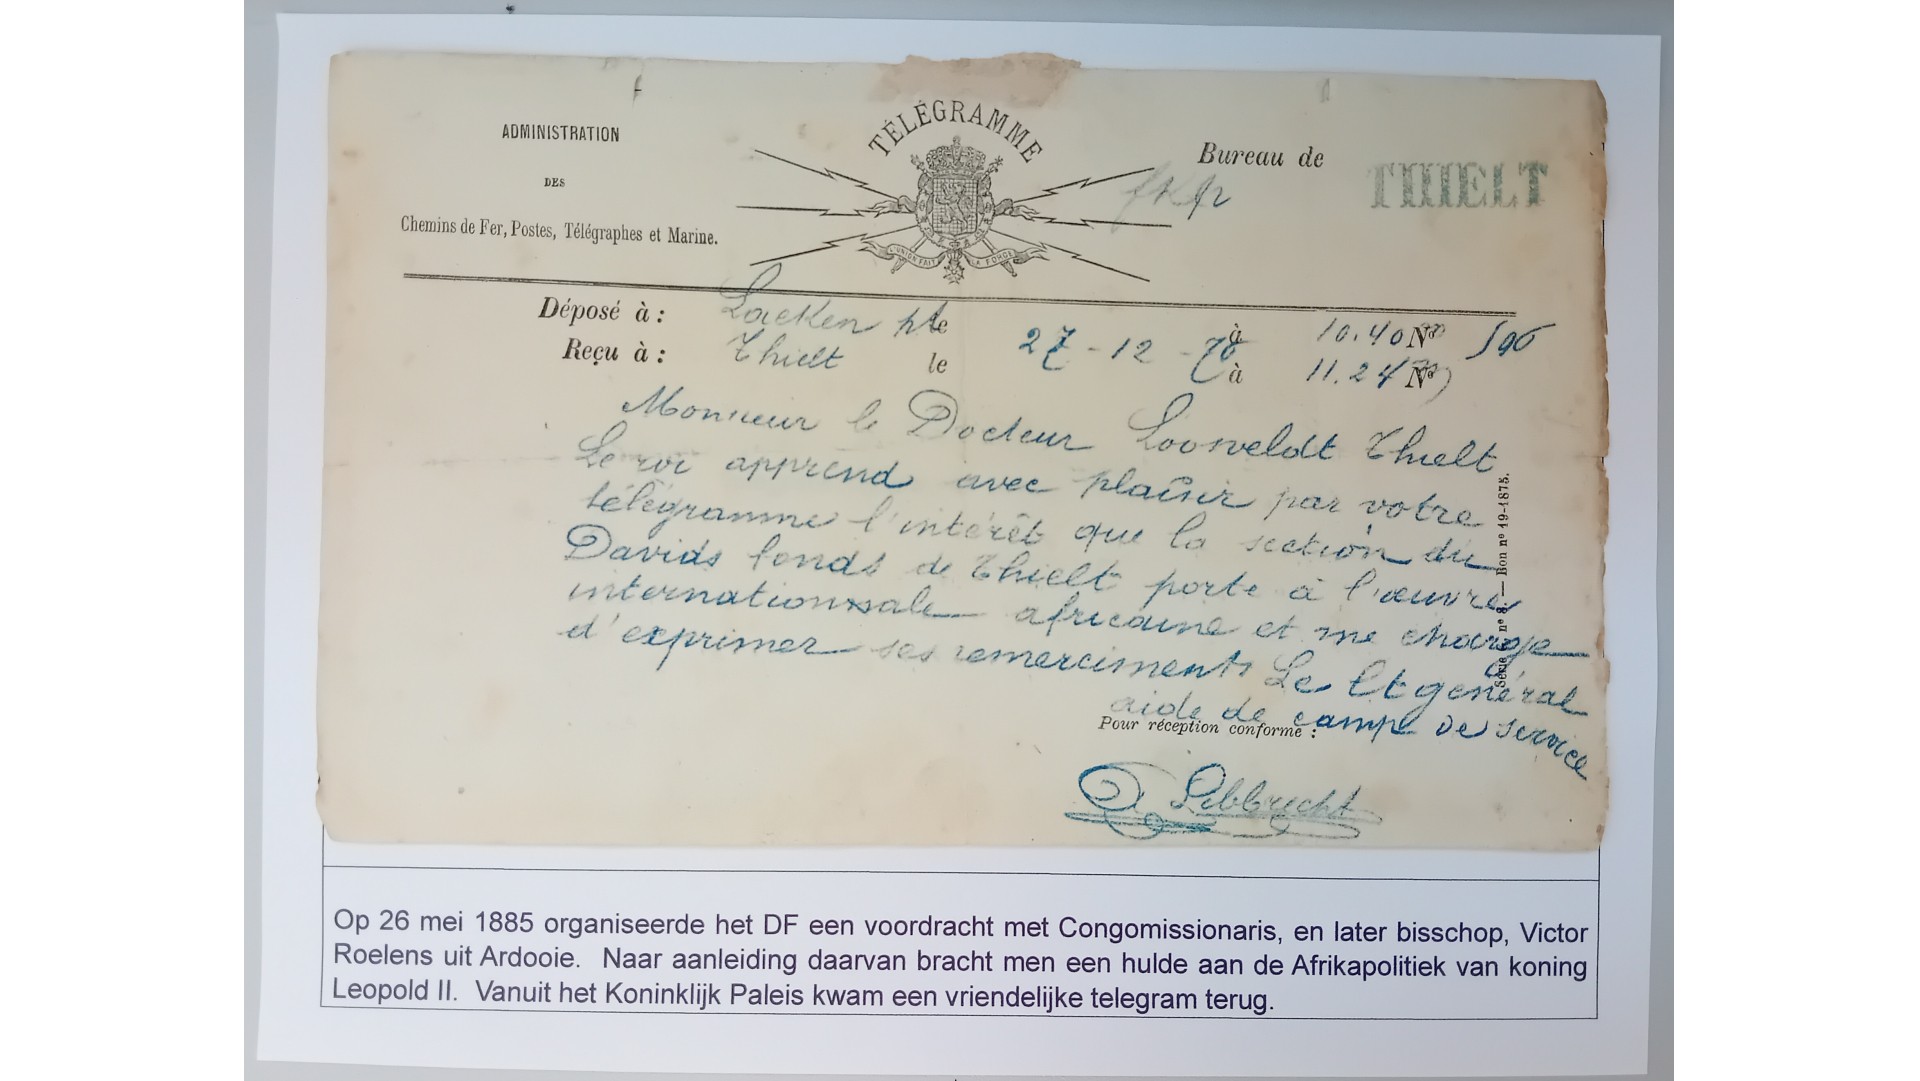 ADMINISTRATION
DES
Chemins de Fer, Postes, Télégraphes et Marine.
TÉLÉGRAMME
L'UNION FAIT LA FORCE
Bureau de THIELT
Déposé à : Laeken le 27-12-76 à 10.40 No 596
Reçu à : Thielt le à 11.24 No
Monsieur le Docteur Loosveldt Thielt
Le roi apprend avec plaisir par votre
télégramme l'intérêt que la section du
Davids fonds de Thielt porte à l'œuvre
internationale africaine et me charge
d'exprimer ses remerciments Le Lt général
aide de camp de service
Pour réception conforme :
Libbrecht
Série n° 8. — Bon n° 19-1875.
Op 26 mei 1885 organiseerde het DF een voordracht met Congomissionaris, en later bisschop, Victor
Roelens uit Ardooie. Naar aanleiding daarvan bracht men een hulde aan de Afrikapolitiek van koning
Leopold II. Vanuit het Koninklijk Paleis kwam een vriendelijke telegram terug.